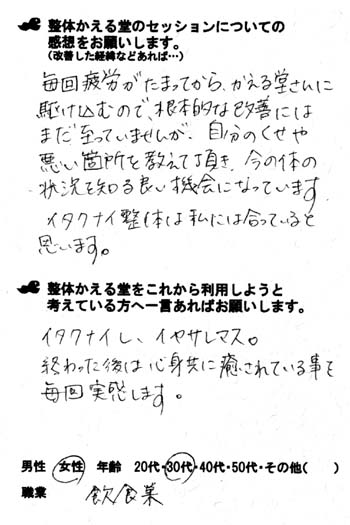 整体かえる堂のセッションについての
感想をお願いします。
(改善した経緯などあれば…)
毎回疲労がたまってから、かえる堂さんに
駆け込むので、根本的な改善には
まだ至っていませんが、自分のくせや
悪い箇所を教えて頂き、今の体の
状況を知る良い機会になっています
イタクナイ整体は私には合っていると
思います。
整体かえる堂をこれから利用しようと
考えている方へ一言あればお願いします。
イタクナイし、イヤサレマス。
終わった後は心身共に癒されている事を
毎回実感します。
男性 女性 年齢 20代・30代・40代・50代・その他( )
職業 飲食業